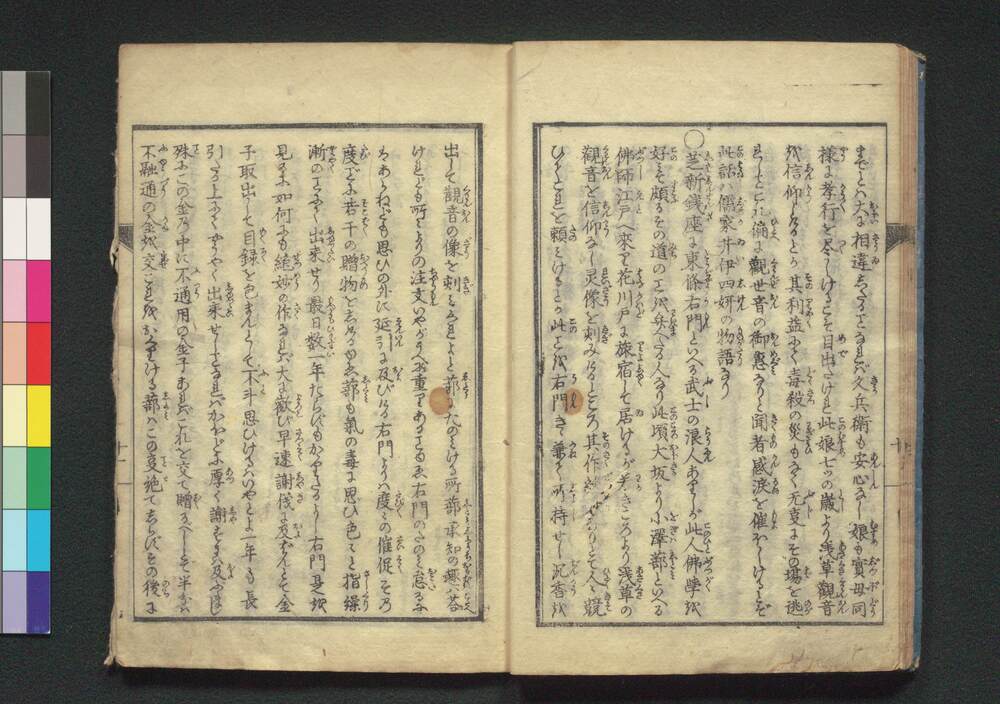 までとハ大に相違したることなれバ久兵衛も安心なし娘も實母同
様に孝行を尽しけるこそ目出たけれ此娘七つの歳より浅草觀音
を信仰なるとぞ其利益にて毒殺の災もなく无事にその場を逃
れしこと偏に觀世音の御惠なりと聞者感涙を催ふしけるとぞ
此話ハ儒家井伊四妍の物語なり
〇芝新銭座に東條右門といへる武士の浪人ありしが此人佛學を
好て頗るその道の工を得たる人なり此頃大坂より小澤蔀といへる
佛師江戸へ來り花川戸に旅宿して居けるが若きころより浅草の
觀音を信仰なし灵像を刻みけるところ其作妙なりとて人々競
ひてこれを頼みけるとか此工を右門きゝ兼て所持せし沉香を
出して觀音の像を刻みくれよと蔀にたのみける所蔀承知の趣答
けれども所々よりの注文いやがうへに重りてあることゆゑ右門のたのミ怠るに
ハあらねども思ひの外に延引に及びける右門よりハ度々の催促その
度ごとに若干の贈物をしけるゆゑ蔀も氣の毒に思ひ色々と指繰
漸のことにて出來せり最日数一年たらずもかゝりたるよし右門是を
見るに如何にも絶妙の作なれバ大に歡び早速謝儀に及ばんとて金
子取出して目録を包まんとして不斗思ひけるハいやとよ一年も長
引たる上にてやうやく出來せしことなれバかほどに厚く謝するに及ばじ
殊にこの金の中に不通用の金子あれバこれを交て贈るべしとて半分
不融通の金を交これをおくりける蔀ハこの事絶てしらずその後に
十一